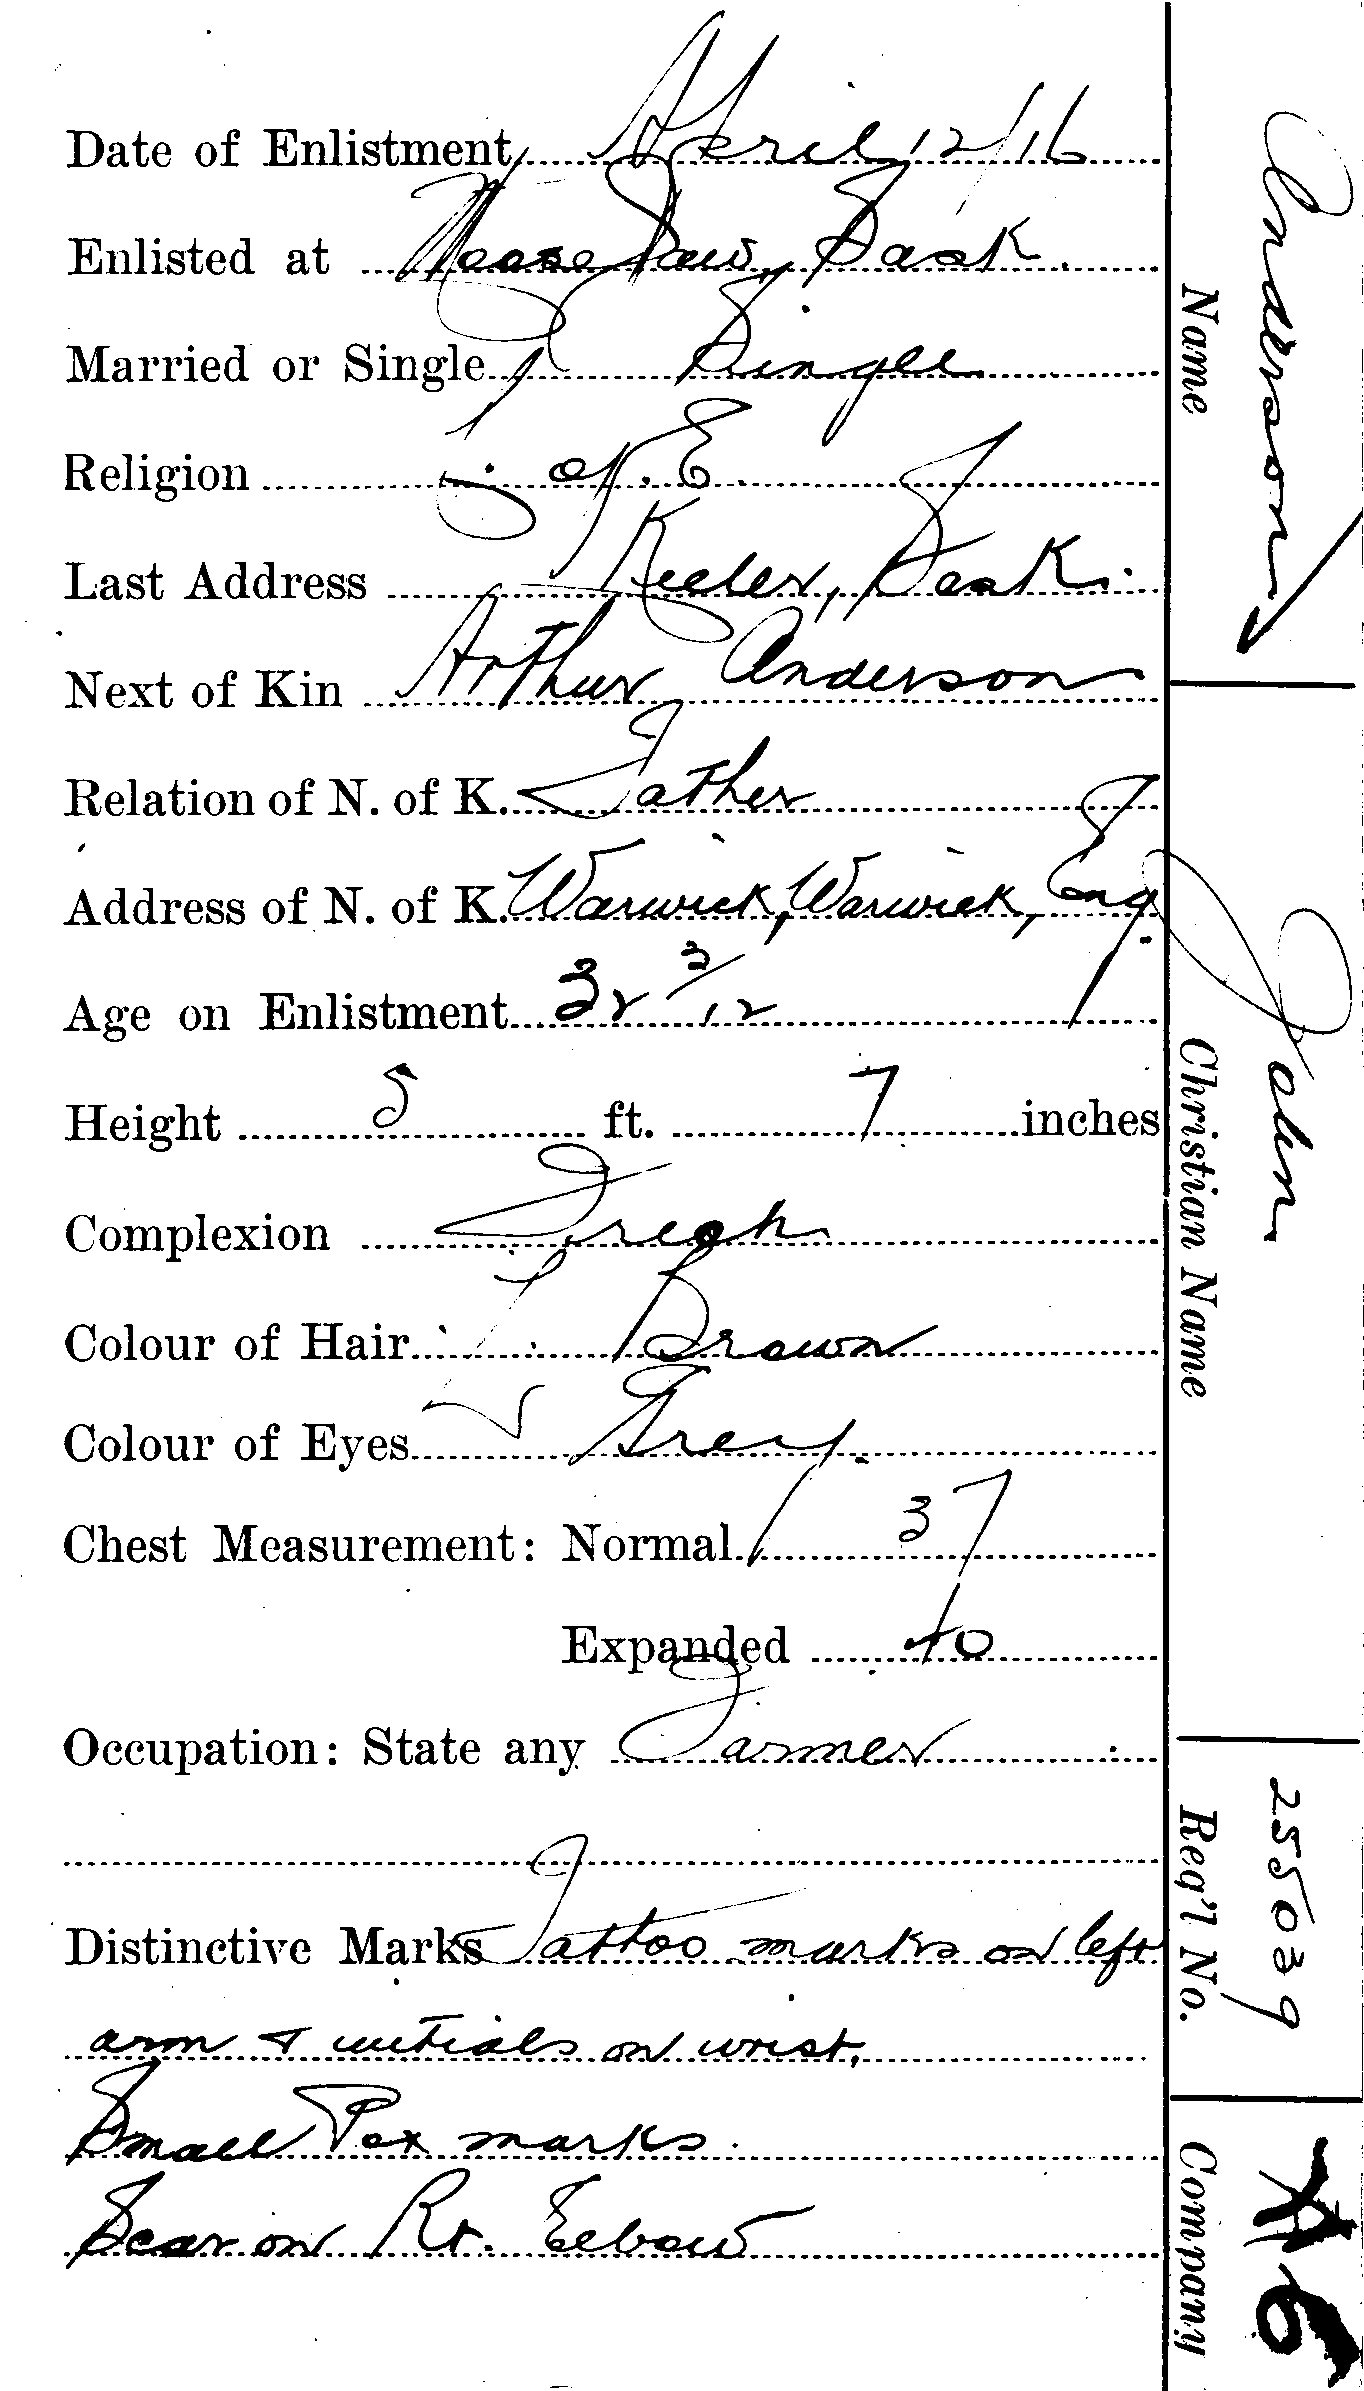 Date of Enlistment April 12/16
Enlisted at Moose Jaw, Sask.
Married or Single Single
Religion C. of E.
Last Address Keeler, Sask.
Next of Kin Arthur Anderson
Relation of N. of K. Father
Address of N. of K. Warwick, Warwick, Eng.
Age on Enlistment 32 3/12
Height 5 ft. 7 inches
Complexion Fresh
Colour of Hair Brown
Colour of Eyes Grey.
Chest Measurement: Normal 37
Expanded 40
Occupation: State any Farmer
Distinctive Marks Tattoo marks on left
arm & initials on wrist.
Small Pox marks.
Scar on Rt. Elbow
Name Anderson
Christian Name John
Req'l No. 255039
Company